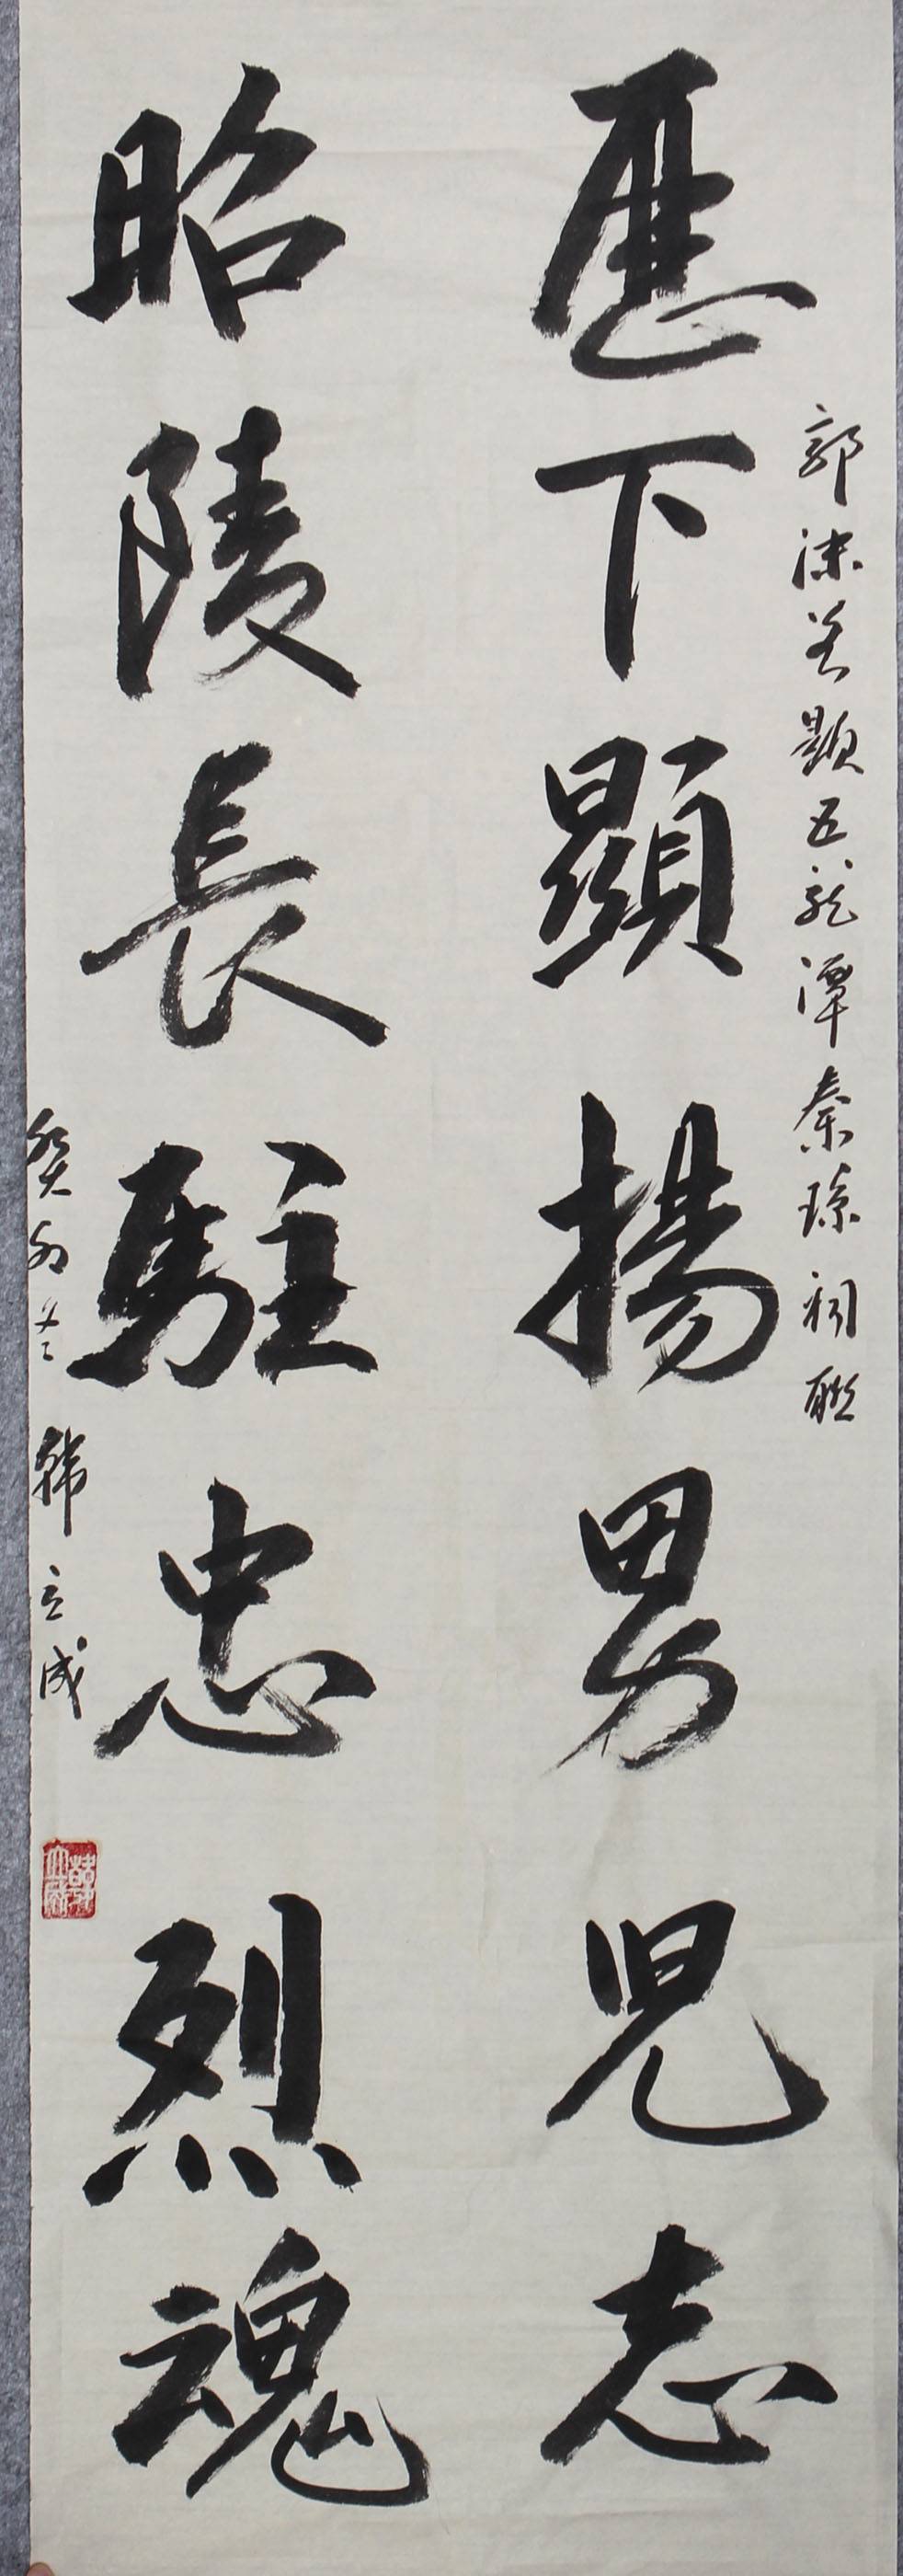 郭沫若题五龙潭秦琼祠联
歷下顯揚男兒志
昭陵長駐忠烈魂
癸卯冬 韩立成